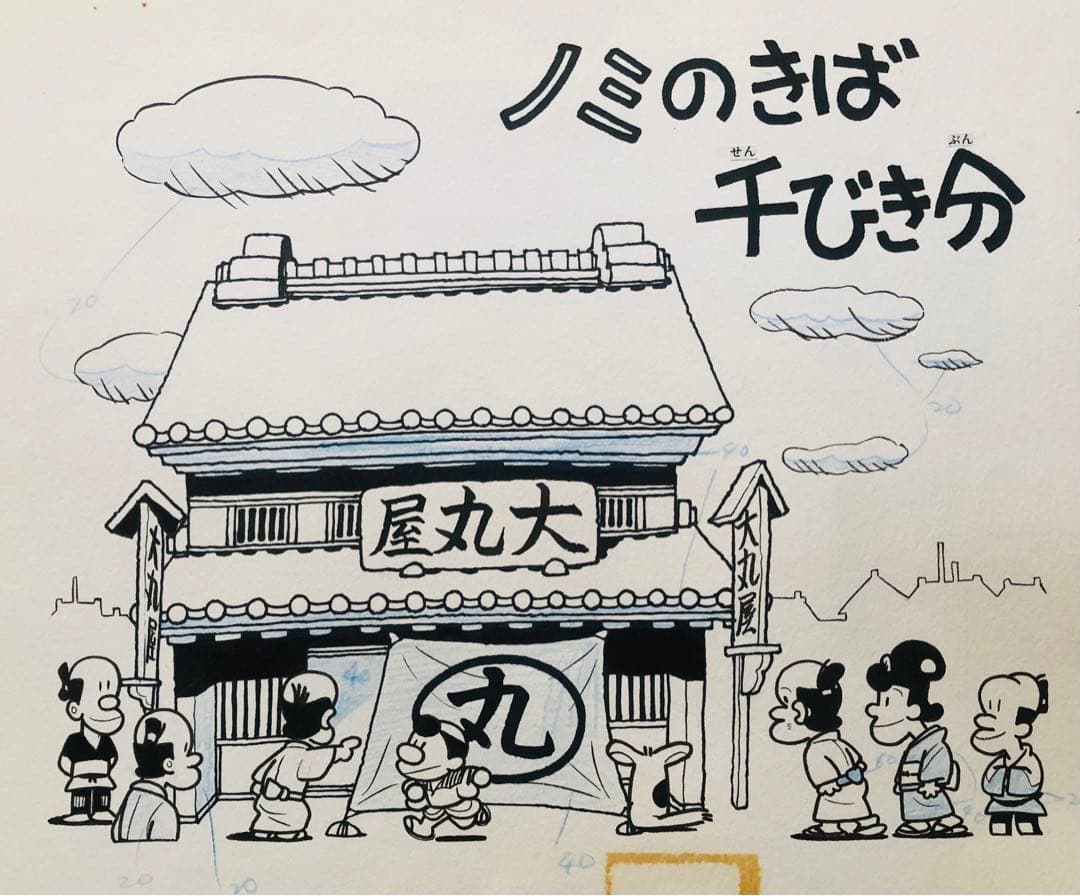 ノミのきば
せん ぶん
千びき分
20
20
40
大丸屋
大丸屋
大丸屋
40
丸
20
20
40